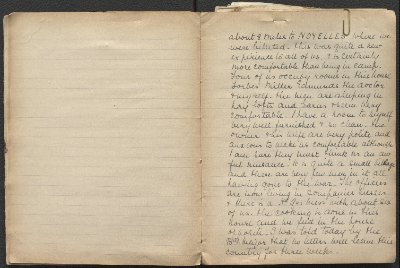 about 9 miles to NOYELLES where we
were billeted. This was quite a new
experience to all of us, & is certainly
more comfortable than being in camp.
Four of us occupy rooms in this house
Forbes Miller Edmunds the doctor
& myself. The men are sleeping in
hay lofts and barns & seem very
comfortable. I have a room to myself
very well furnished & so clean. The
owner & his wife are very polite and
anxious to make us comfortable although
I am sure they must think us an aw
ful nuisance. It is quite a small village
and there are very few men in it all
having gone to the war. The officers
are now living in Companies messes
& there is a HdQrs mess with about six
of us. The cooking is done in this
house and we live in the house
opposite. I was told today by the
Bde Major that no letters will leave this
country for three weeks.